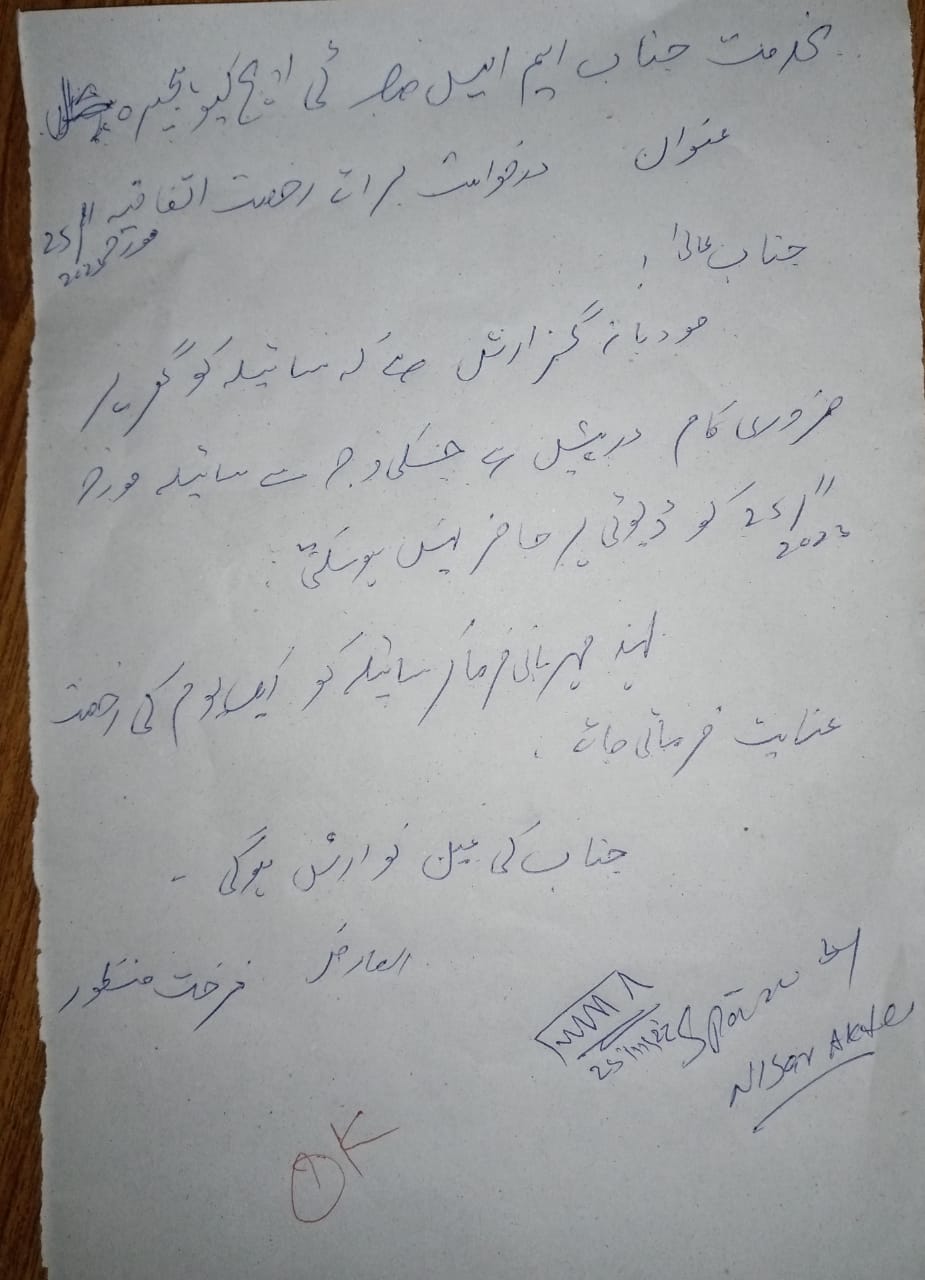 بخدمت جناب ایم ایس صاحب ٹی ایچ کیو بھیرہ
عنوان درخواست برائے رخصت اتفاقیہ
مورخہ 25/11 2023
جناب عالی!
مودبانہ گزارش ہے کہ سائیلہ کو گھریلو
ضروری کام درپیش ہے جسکی وجہ سے سائیلہ مورخہ
25/11 2023 کو ڈیوٹی پر حاضر نہیں ہوسکتی۔
لہذا مہربانی فرما کر سائیلہ کو ایک یوم کی رخصت
عنایت فرمائی جائے۔
جناب کی عین نوازش ہوگی۔
العارض فرحت منظور
25/11/23
by
Nisar Akhter
OK